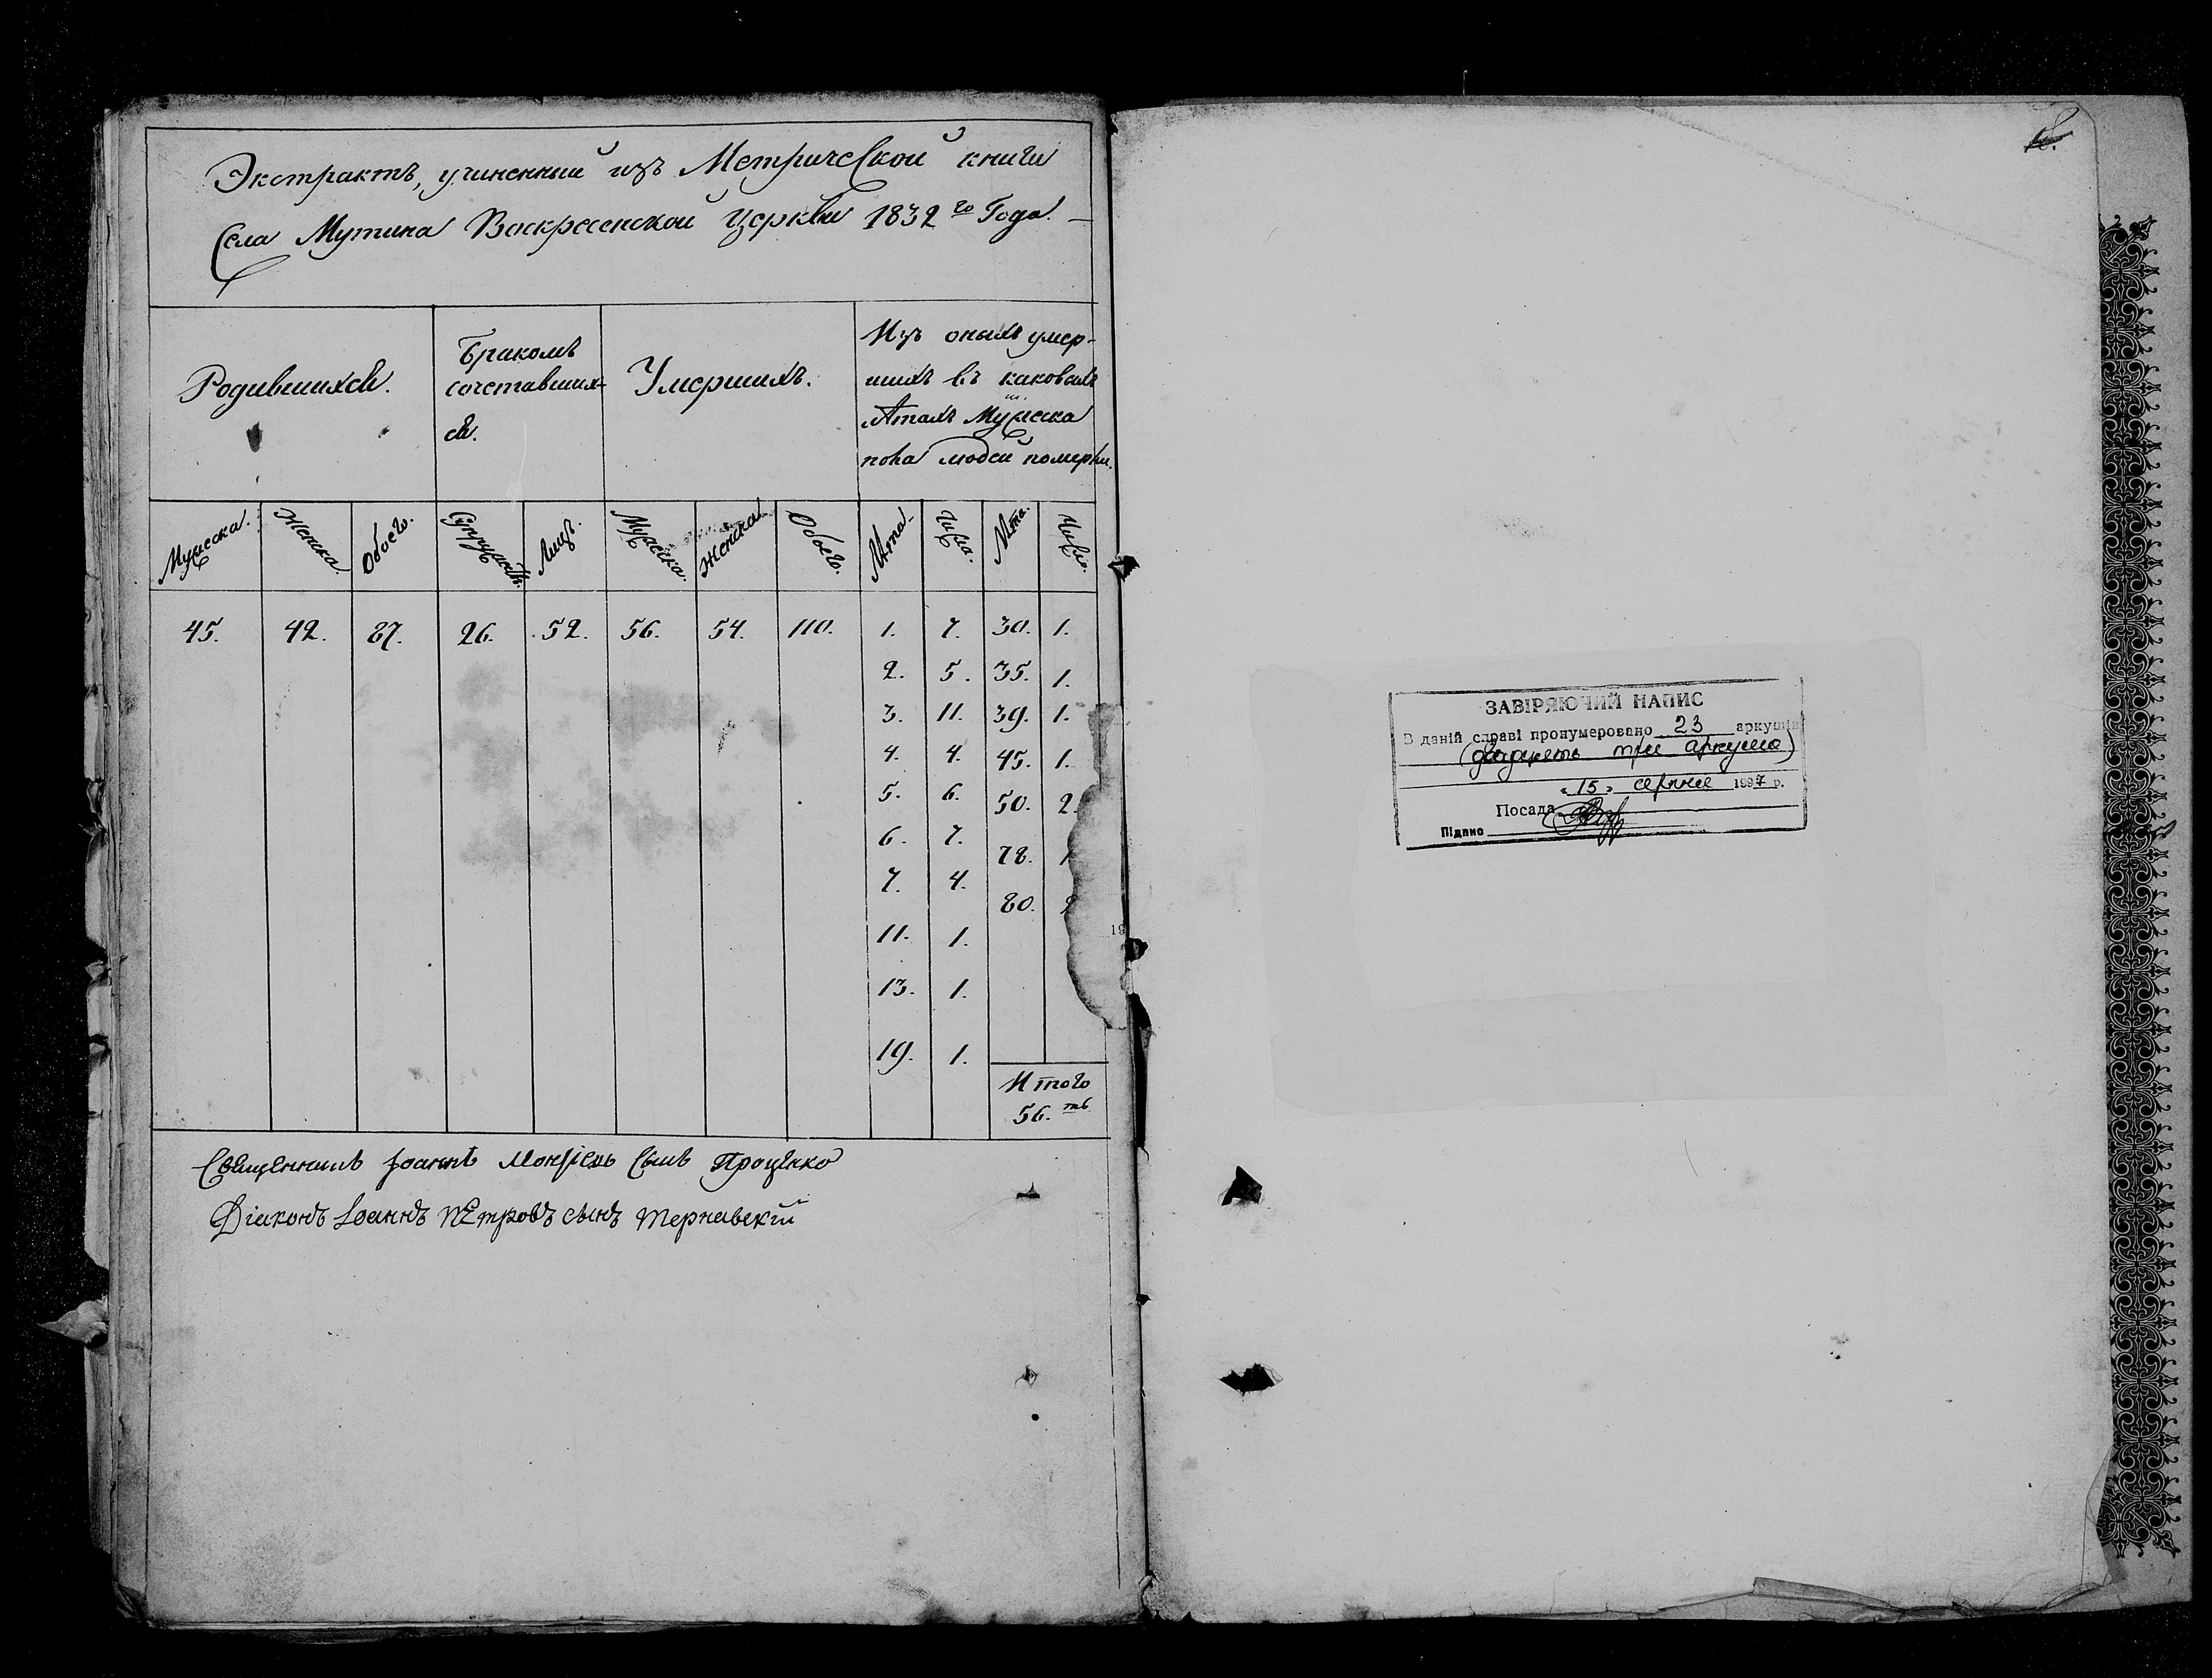 Экстрактъ, учиненный изъ Метрической книги
Села Мутина Воскресенской Церкви 1832го Года.
Родившихся.
Бракомъ
сочетавших-
ся.
Умершихъ.
Изъ оныхъ умер-
шихъ въ каковыхъ
лѣтахъ Мужеска
пола людей померли.
Мужеска. Женска. Обоего. Супружествъ. Лицъ. Мужеска. Женска. Обоего. Лѣта. Числа. Лѣта. Число.
45. 42. 87. 26. 52. 56. 54. 110. 1. 7. 30. 1.
2. 5. 35. 1.
3. 11. 39. 1.
4. 4. 45. 1.
5. 6. 50. 2.
6. 7. 78. 1
7. 4. 80.
11. 1.
13. 1.
19. 1.
Итого
56.ть
Священникъ Іоаннъ сынъ Проценко
Діаконъ Іоаннъ Петровъ сынъ Тернавскій
19
ЗАВІРЯЮЧИЙ НАПИС
В даній справі пронумеровано 23 аркушів
(двадцять три аркуша)
„15„ серпня 1997 р.
Посада
Підпис